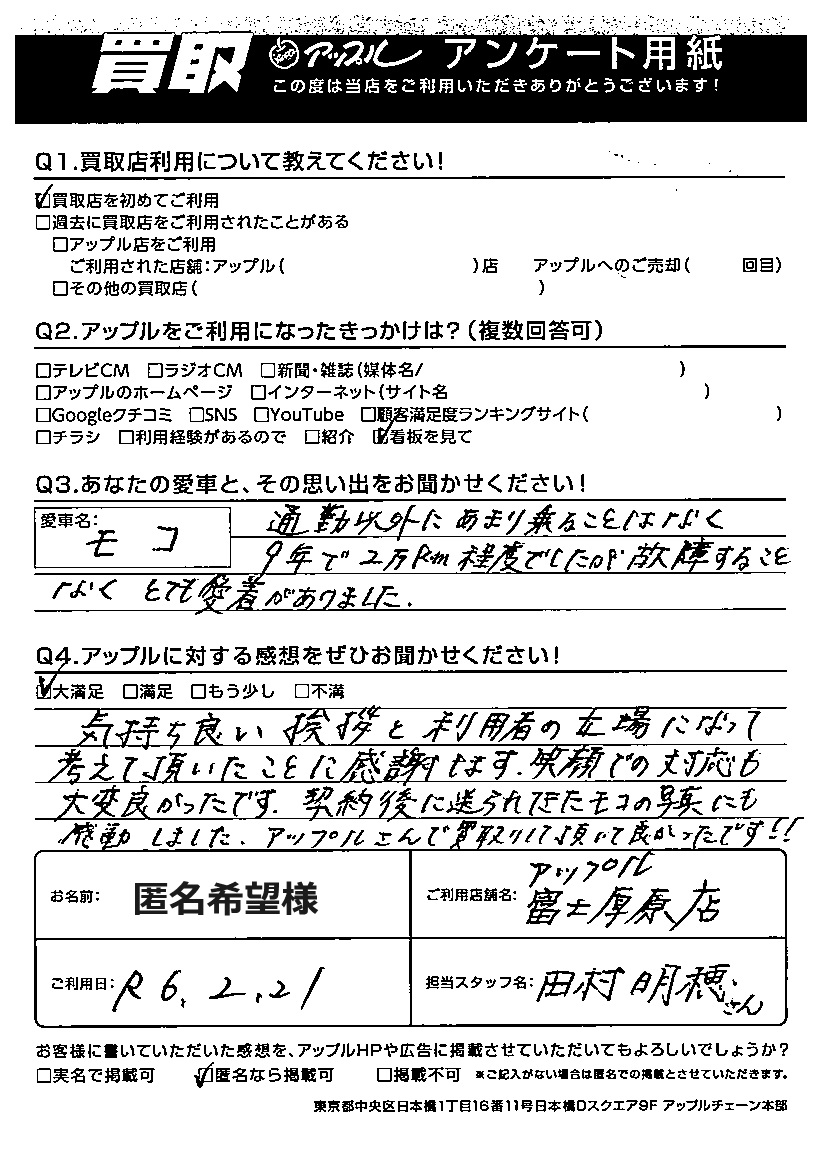 買取 アップル アンケート用紙
この度は当店をご利用いただきありがとうございます!
Q1.買取店利用について教えてください!
☑買取店を初めてご利用
□過去に買取店をご利用されたことがある
□アップル店をご利用
ご利用された店舗:アップル( )店 アップルへのご売却( 回目)
□その他の買取店( )
Q2.アップルをご利用になったきっかけは?(複数回答可)
□テレビCM □ラジオCM □新聞・雑誌(媒体名/ )
□アップルのホームページ □インターネット(サイト名 )
□Googleクチコミ □SNS □YouTube □顧客満足度ランキングサイト( )
□チラシ □利用経験があるので □紹介 ☑看板を見て
Q3.あなたの愛車と、その思い出をお聞かせください!
愛車名: モコ
通勤以外にあまり乗ることはなく
9年で2万km程度でしたが故障すること
なくとても愛着がありました.
Q4.アップルに対する感想をぜひお聞かせください!
☑大満足 □満足 □もう少し □不満
気持ち良い挨拶と利用者の立場になって
考えて頂いたことに感謝します.笑顔での対応も
大変良かったです.契約後に送られてきたモコの写真にも
感動しました.アップルさんで買取りして頂いて良かったです!!
お名前: 匿名希望様
ご利用店舗名: アップル
富士厚原店
ご利用日: R6.2.21
担当スタッフ名: 田村明穂さん
お客様に書いていただいた感想を、アップルHPや広告に掲載させていただいてもよろしいでしょうか?
□実名で掲載可 ☑匿名なら掲載可 □掲載不可 ※ご記入がない場合は匿名での掲載とさせていただきます。
東京都中央区日本橋1丁目16番11号日本橋Dスクエア9F アップルチェーン本部